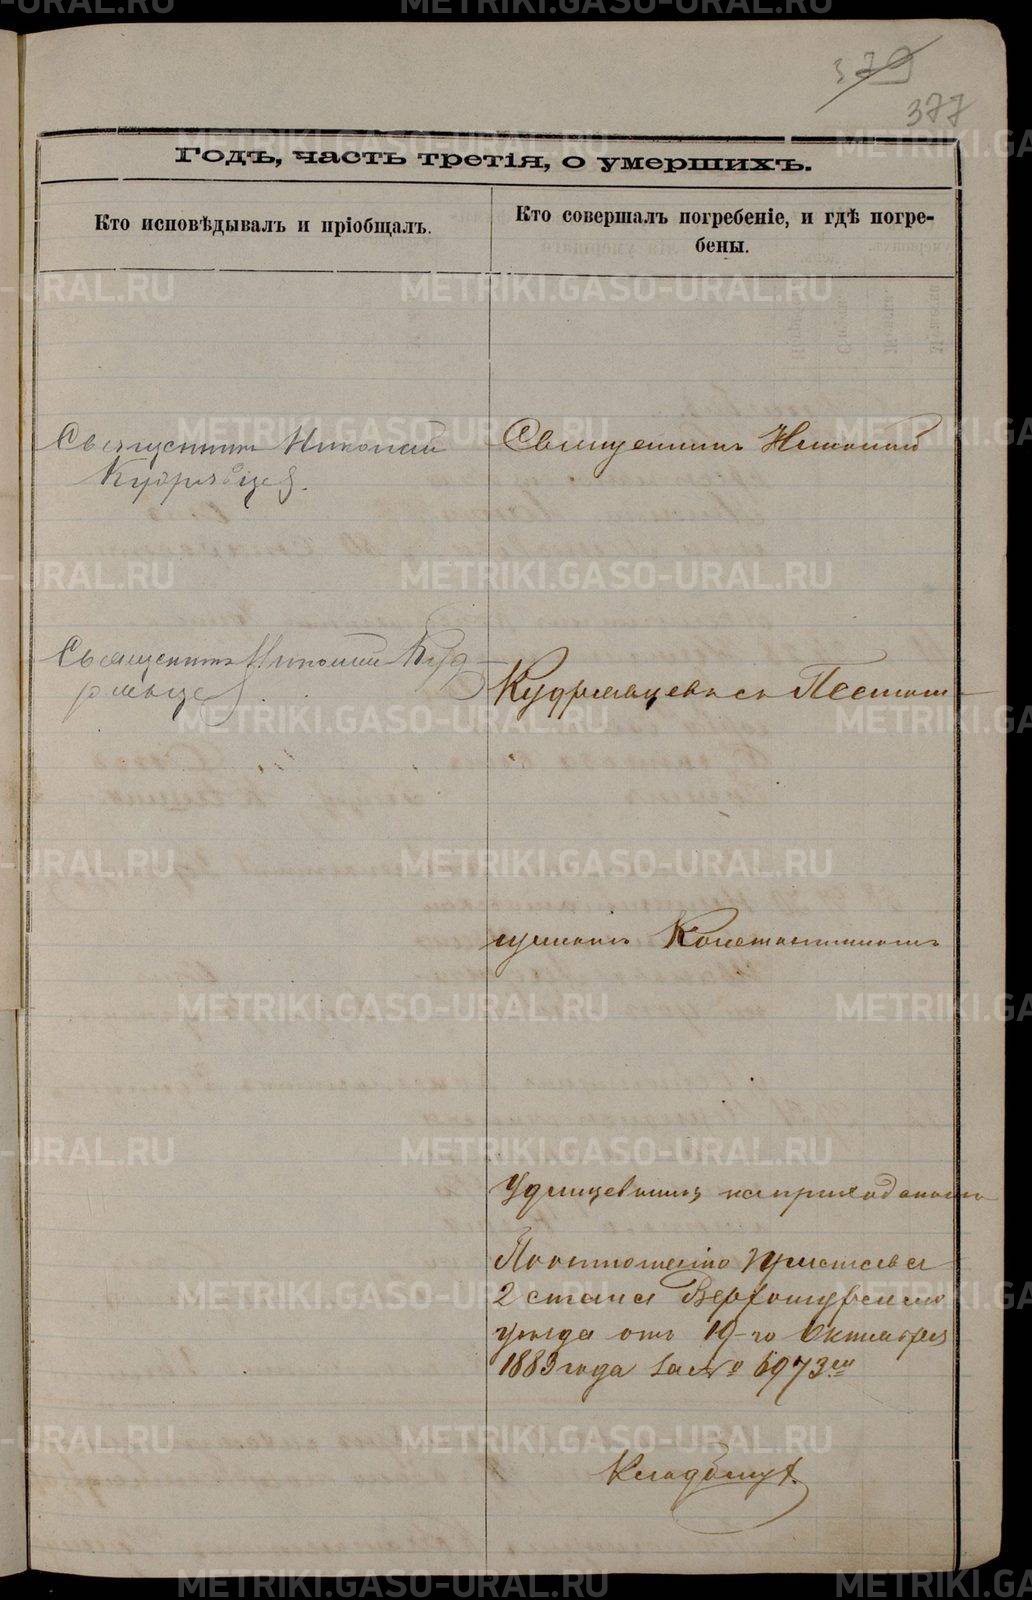 379
377
Годъ, часть третія, о умершихъ.
Кто исповѣдывалъ и пріобщалъ.
Кто совершалъ погребеніе, и гдѣ погре-
бены.
Священникъ Николай
Кудрявцев.
Священникъ Николай
Священникъ Николай Куд-
рявцев.
Кудрявцевъ съ Псалом-
щикомъ Константиномъ
Удинцевымъ на приходскомъ
По отношению Пристава
2 стана Верхотурскаго
уезда отъ 19-го Октября
1883 года за № 6973ем
Кладбищѣ.
METRIKI.GASO-URAL.RU